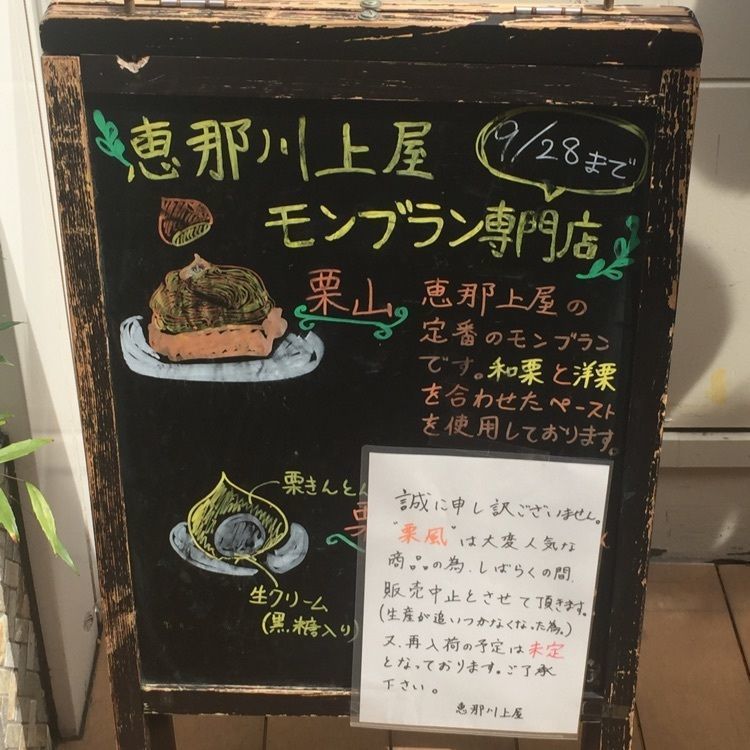 恵那川上屋
9/28まで
モンブラン専門店
栗山
恵那上屋の
定番のモンブラン
です。和栗と洋栗
を合わせたペースト
を使用しております。
栗きんとん
生クリーム
(黒糖入り)
誠に申し訳ございません。
"栗風"は大変人気な
商品の為、しばらくの間、
販売中止とさせて頂きます。
(生産が追いつかなくなった為。)
又、再入荷の予定は未定
となっております。ご了承
下さい。
恵那川上屋